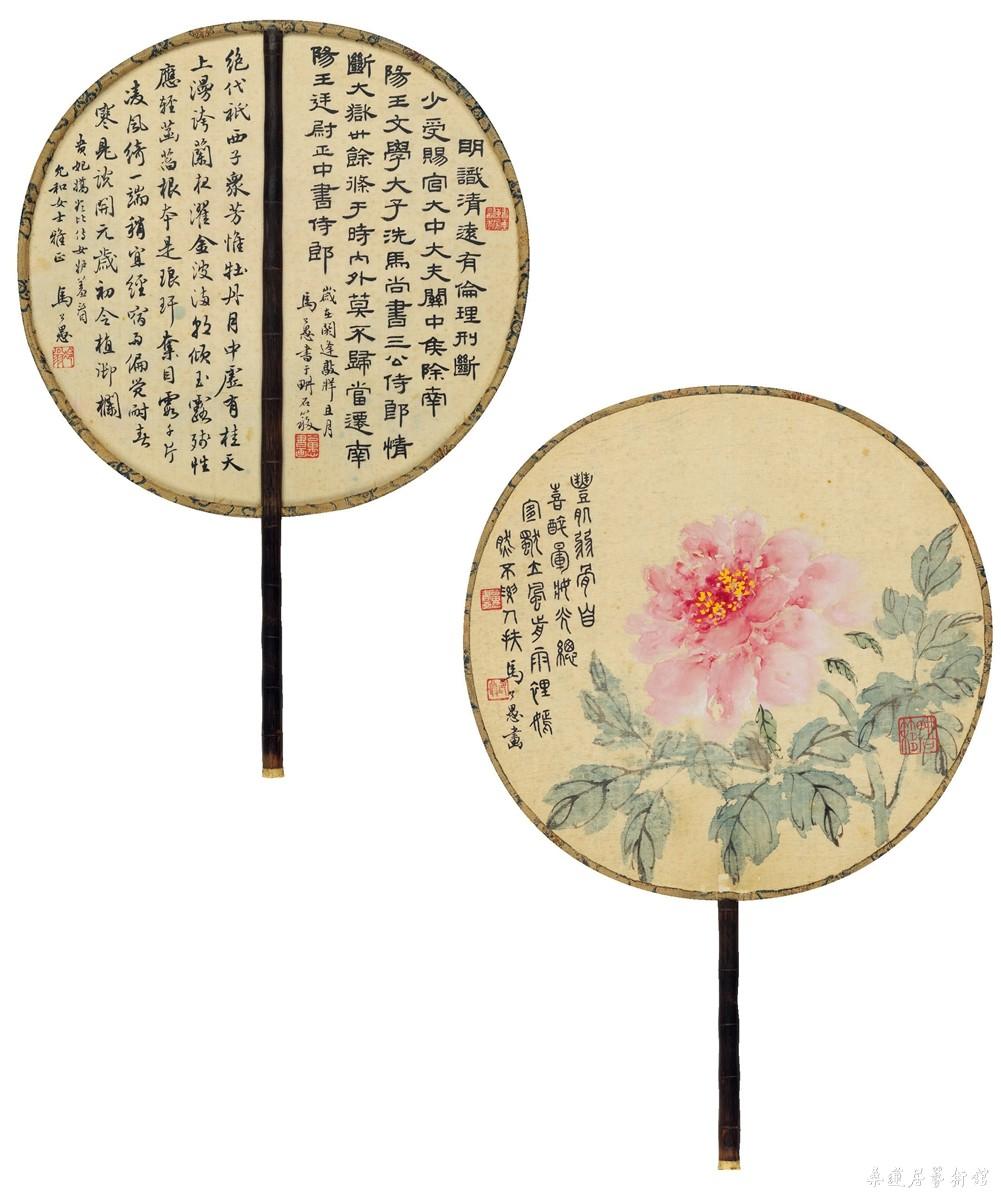 明識清遠有倫理刑斷
少受賜官大中大夫關中侯除南
陽王文學大子洗馬尚書三公侍郎情
斷大獄卅餘條于時內外莫不歸當遷南
陽王廷尉正中書侍郎
歲在閼逢敦牂且月
馬公愚書于畊石簃
絕代祇西子衆芳惟牡丹月中虛有桂天
上漫誇蘭夜濯金波滿朝傾玉露殘性
應輕菡萏根本是琅玕奪目霞千片
凌風綺一端稍宜經宿雨偏覺耐春
寒見說開元歲初令植御欄
貴妃嬌欲比侍女妒羞看
允和女士雅正
馬公愚
豐肌弱骨自
喜醉暈妝光總
宜獨立風前雨裡嫣
然不須人扶
馬公愚畫
桑蓮居藝術館